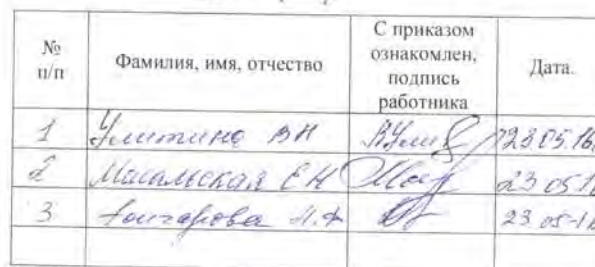 № п/п Фамилия, имя, отчество С приказом ознакомлен, подпись работника Дата.
1 Улитина ВН 23.05.16
2 Масальская ЕН 23 05 1
3 Гончарова Н.Ф 23.05-1